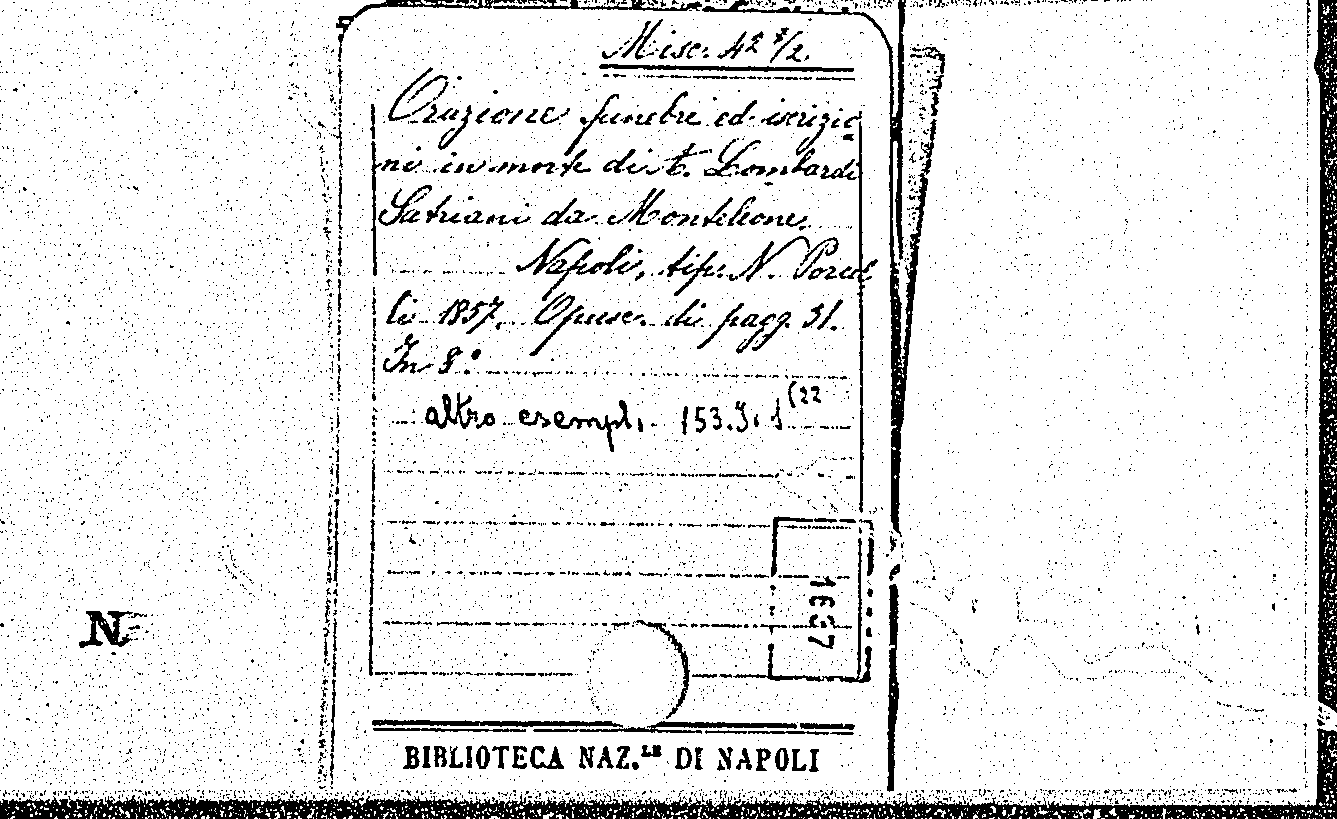 Misc. 42 7/2.
Orazione funebre ed iscrizio
ni in morte di T. Lombardi
Satriani da Monteleone.
Napoli, tip. N. Porcel
li 1857. Opusc. di pagg. 31.
In 8.°
altro esempl. 153.I.1(22
1637
N
BIBLIOTECA NAZ.LE DI NAPOLI